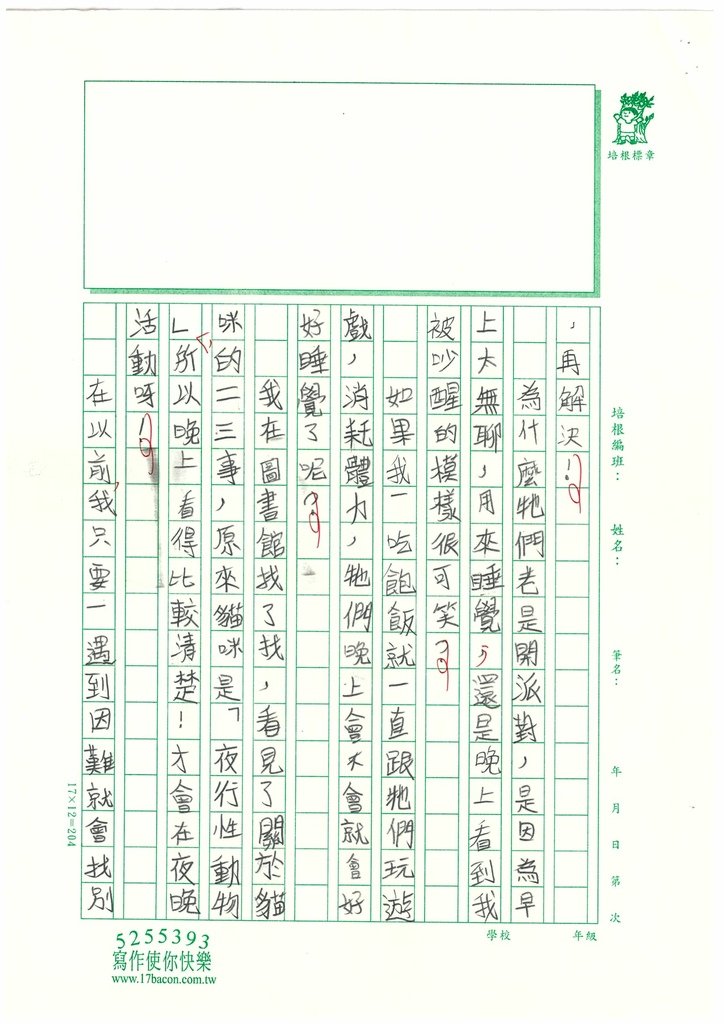 培根標章
培根編班：　姓名：　筆名：　年　月　日第　次
，再解決！
為什麼牠們老是開派對，是因為早
上太無聊，用來睡覺，還是晚上看到我
被吵醒的模樣很可笑？
如果我一吃飽飯就一直跟牠們玩遊
戲，消耗體力，牠們晚上會不會就會好
好睡覺了呢？
我在圖書館找了找，看見了關於貓
咪的二三事，原來貓咪是「夜行性動物
」所以晚上看得比較清楚！才會在夜晚
活動呀！
在以前，我只要一遇到困難就會找別
17×12=204
學校　年級
5255393
寫作使你快樂
www.17bacon.com.tw